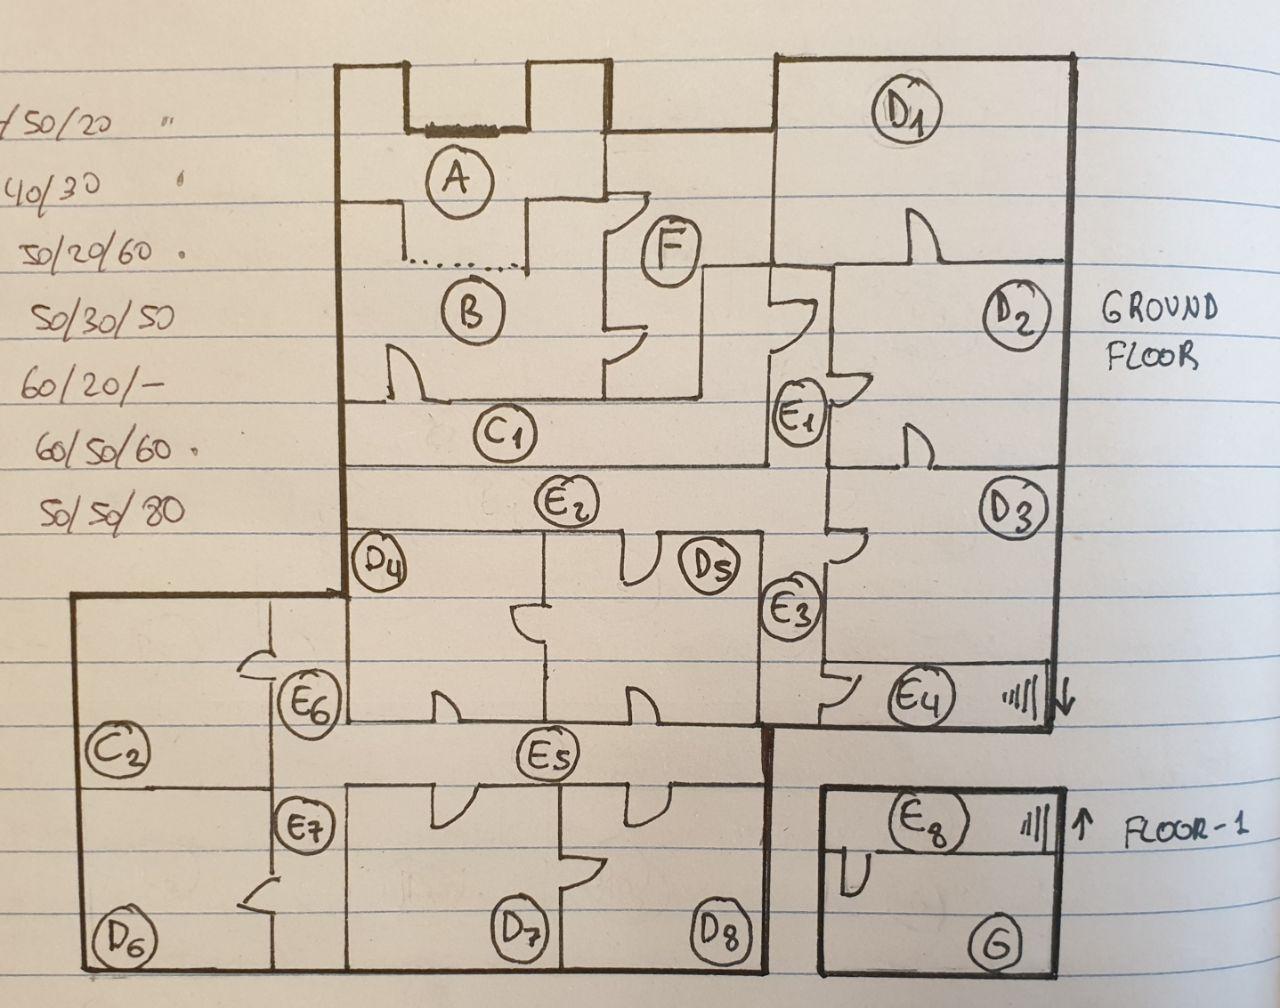 /50/20 "
40/30 "
50/20/60 .
50/30/50
60/20/-
60/50/60 .
50/50/80
D1
A
F
B
D2
GROUND
FLOOR
E1
C1
E2
D3
D4
D5
E3
E6
E4
C2
E5
E7
E8
FLOOR-1
D6
D7
D8
G